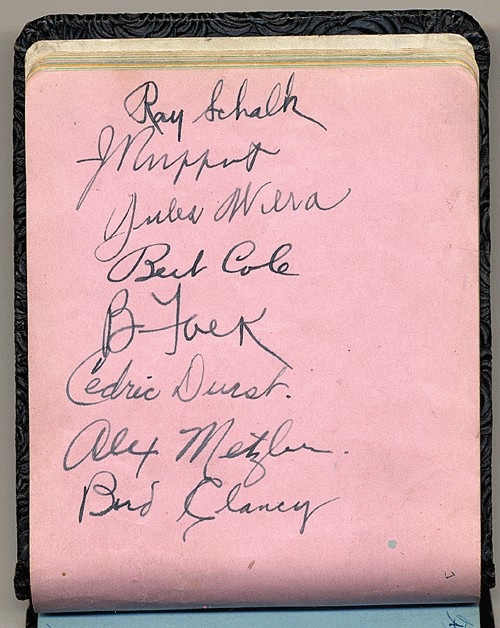 Ray Schalk
J Mupput
Jules Wera
Bert Cole
B Foek
Cedric Durst.
Alex Metzler.
Bud Clancy